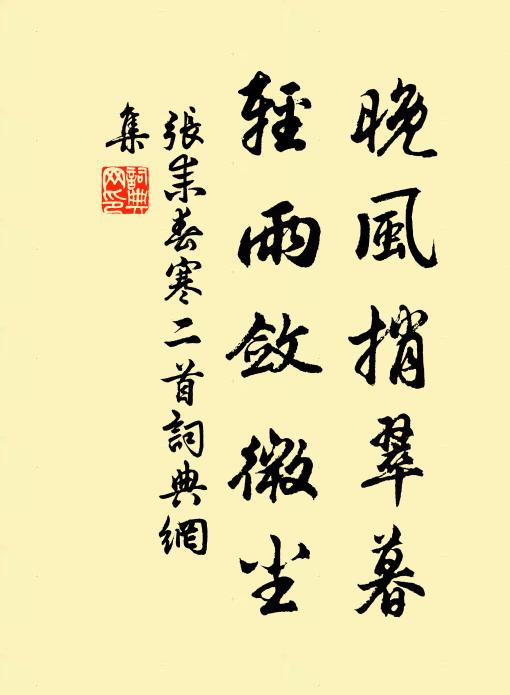 晚風捎翠暮
輕雨斂微尘
張耒春寒二首詞典網
集
詞典网印